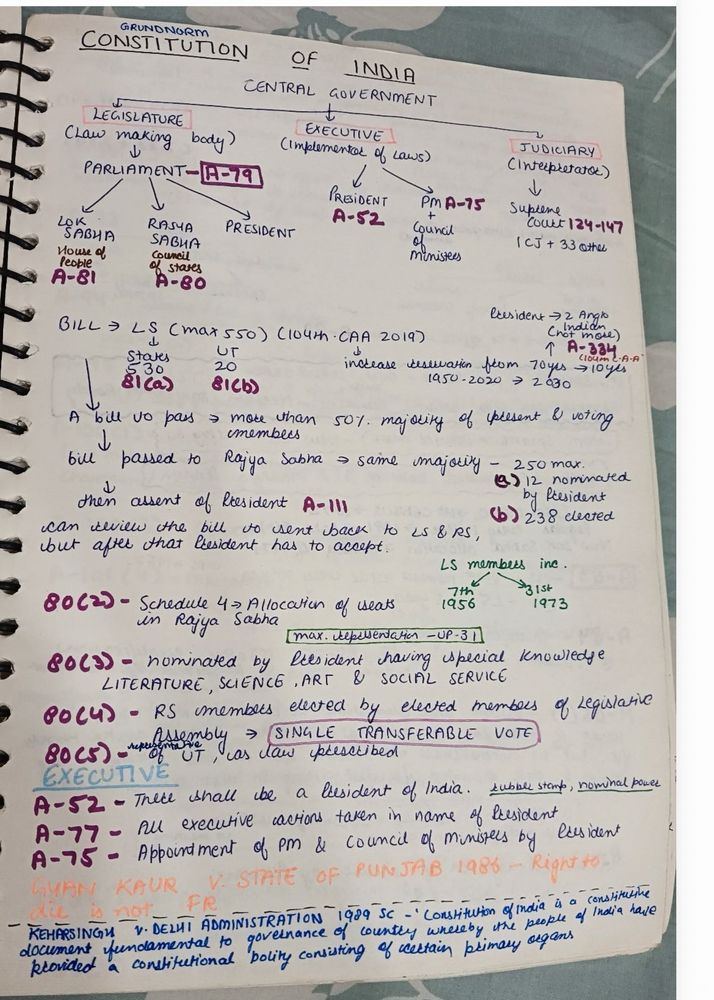 GRUNDNORM
CONSTITUTION OF INDIA
CENTRAL GOVERNMENT
LEGISLATURE
(Law making body)
PARLIAMENT - A-79
LOK SABHA
House of People
A-81
RAJYA SABHA
Council of states
A-80
PRESIDENT
EXECUTIVE
(Implementor of Laws)
PRESIDENT
A-52
PM A-75
+
Council
of
Ministers
JUDICIARY
(Interpretator)
Supreme
Court 124-147
1 CJ + 33 other
President → 2 Anglo
Indian
(not more)
↑ A-334
(104th C.A.A)
BILL → LS (max 550) (104th CAA 2019)
States
530
81(a)
UT
20
81(b)
increase reservation from 70yrs → 10yrs
1950-2020 → 2030
A bill to pass → more than 50% majority of present & voting
members
bill passed to Rajya Sabha → same majority - 250 max.
(a) 12 nominated
by President
(b) 238 elected
then assent of President A-111
can review the bill to sent back to LS & RS,
but after that President has to accept.
LS members inc.
7th
1956
31st
1973
80(2) - Schedule 4 → Allocation of seats
in Rajya Sabha
max. representation - UP-31
80(3) - nominated by President having special knowledge
LITERATURE, SCIENCE, ART & SOCIAL SERVICE
80(4) - RS members elected by elected members of Legislative
Assembly → SINGLE TRANSFERABLE VOTE
80(5) - representative of UT, as law prescribed
EXECUTIVE
A-52 - There shall be a President of India. rubber stamp, nominal power
A-77 - All executive actions taken in name of President
A-75 - Appointment of PM & Council of Ministers by President
GYAN KAUR V. STATE OF PUNJAB 1986 - Right to
die is not FR
KEHARSINGH v. DELHI ADMINISTRATION 1989 SC - 'Constitution of India is a constitutive
document fundamental to governance of country whereby the people of India have
provided a constitutional polity consisting of certain primary organs